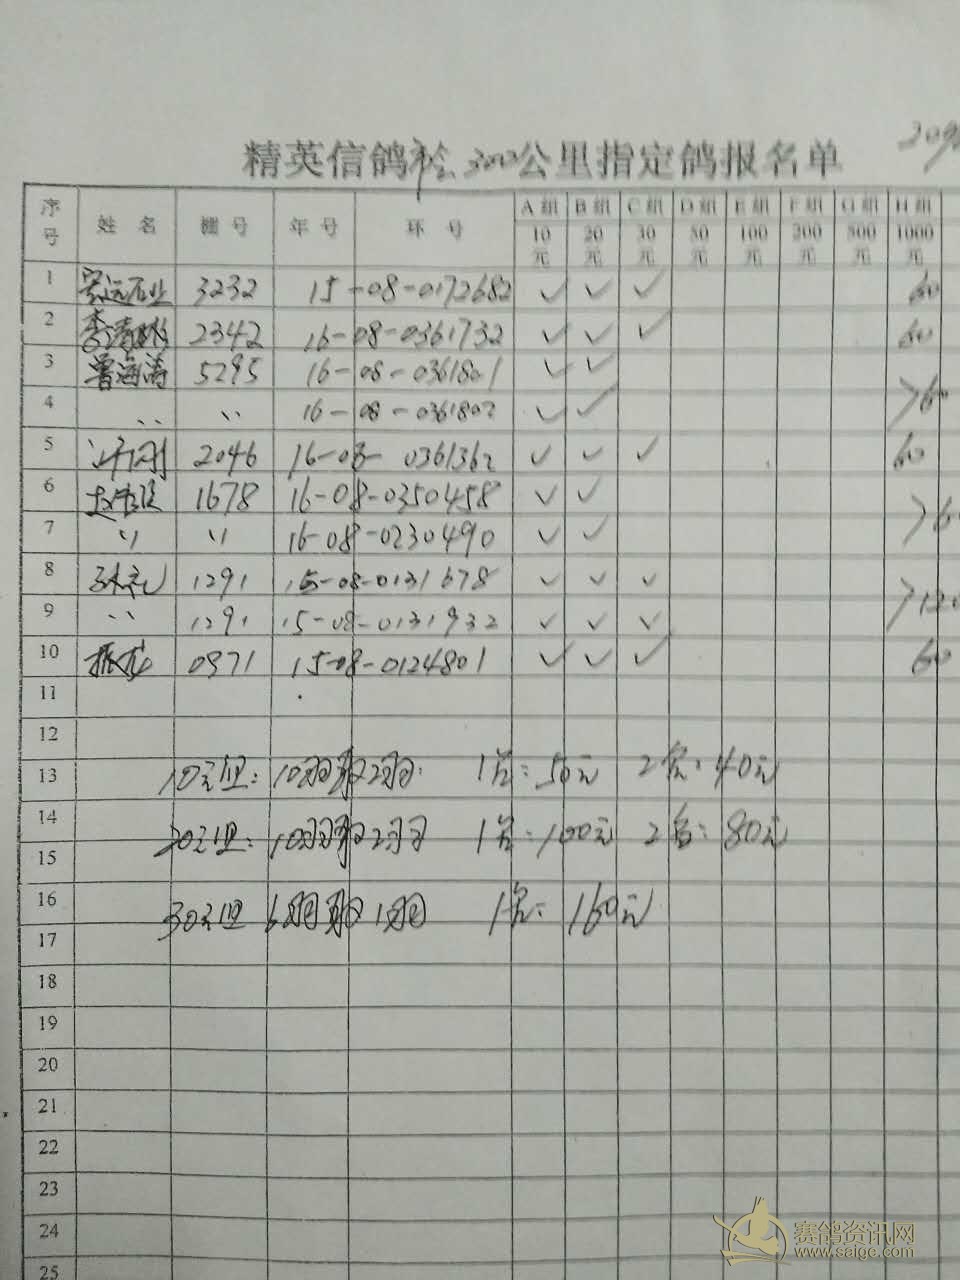 精英信鸽 300公里指定鸽报名单
序号 姓 名 棚 号 年 号 环 号 A 组 B 组 C 组 D 组 E 组 F 组 G 组 H 组
10元 20元 30元 50元 100元 200元 500元 1000元
1 宏远石业 3232 15-08-0172682 ✓ ✓ ✓ 60
2 2342 16-08-0361732 ✓ ✓ ✓ 60
3 曾海涛 5295 16-08-0361801 ✓ ✓
4 〃 〃 16-08-0361802 ✓ ✓ >60
5 许刚 2046 16-08-0361362 ✓ ✓ ✓ 60
6 1678 16-08-0350458 ✓ ✓
7 〃 〃 16-08-0230490 ✓ ✓
8 孙礼 1291 15-08-0131678 ✓ ✓ ✓
9 〃 1291 15-08-0131932 ✓ ✓ ✓ >120
10 振龙 0971 15-08-0124801 ✓ ✓ ✓ 60
11
12
13 10元组: 10羽取2羽: 1名: 50元 2名: 40元
14 20元组: 10羽取2羽 1名: 100元 2名: 80元
15
16 30元组 6羽取1羽 1名: 160元
17
18
19
20
21
22
23
24
25
赛鸽资讯网
www.saigc.com